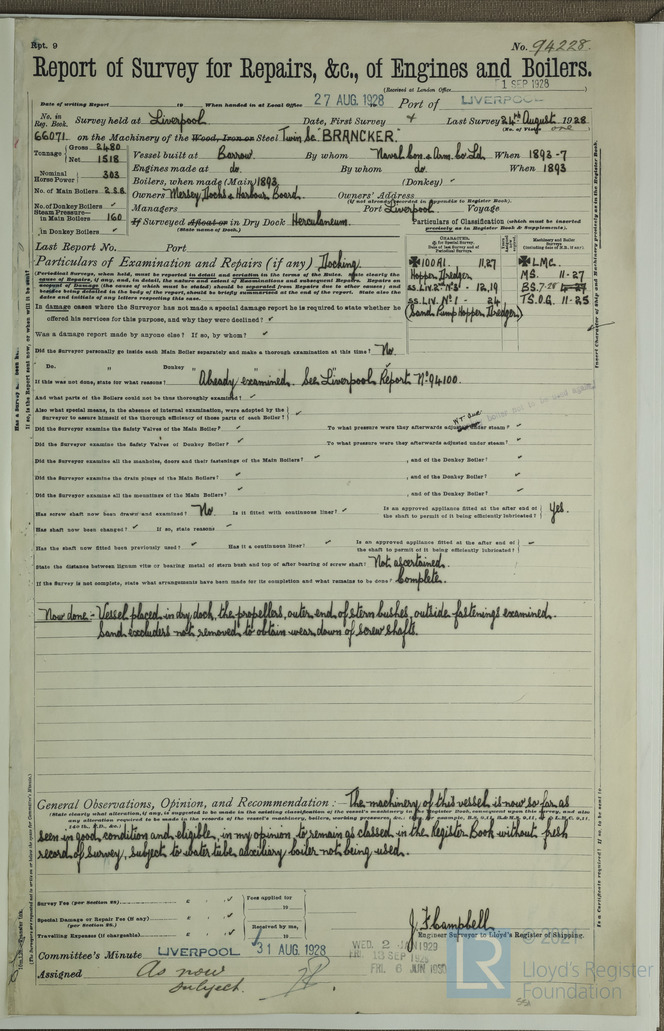 Rpt. 9
No. 94228.
Report of Survey for Repairs, &c., of Engines and Boilers.
(Received at London Office 1 SEP 1928 )
Date of writing Report 19 When handed in at Local Office 27 AUG. 1928 Port of LIVERPOOL
No. in Reg. Book. Survey held at Liverpool Date, First Survey Last Survey 24th August 1928
(No. of Visits one)
66071. on the Machinery of the Wood, Iron or Steel Twin Sc "BRANCKER."
Tonnage Gross 2480 Net 1518
Vessel built at Barrow. By whom Naval Con. & Arm. Co Ld. When 1893-7
Nominal Horse Power 303
Engines made at do. By whom do. When 1893
Boilers, when made (Main) 1893 (Donkey) ✓
No. of Main Boilers 2 S.B.
Owners Mersey Docks & Harbour Board. Owners' Address
(if not already recorded in Appendix to Register Book.)
No. of Donkey Boilers ✓
Managers Port Liverpool Voyage
Steam Pressure— in Main Boilers 160
in Donkey Boilers ✓
If Surveyed Afloat or in Dry Dock Herculaneum.
(State name of Dock.)
Particulars of Classification (which must be inserted precisely as in Register Book & Supplements).
Last Report No. Port
Particulars of Examination and Repairs (if any) Docking.
✠100A1. 11,27
Hopper Dredger.
ss. Liv. 2nd No3 - 12,19
ss. Liv. No 1 - 24
(Sand Pump Hopper Dredger)
✠LMC.
MS. 11-27
BS. 7-28
TS.O.G. 11-25
In damage cases where the Surveyor has not made a special damage report he is required to state whether he offered his services for this purpose, and why they were declined? ✓
Was a damage report made by anyone else? If so, by whom? ✓
Did the Surveyor personally go inside each Main Boiler separately and make a thorough examination at this time? No.
Do. " Donkey " " "
If this was not done, state for what reasons? Already examined. See Liverpool Report No 94100.
And what parts of the Boilers could not be thus thoroughly examined? ✓
Also what special means, in the absence of internal examination, were adopted by the Surveyor to assure himself of the thorough efficiency of those parts of each Boiler? ✓
Did the Surveyor examine the Safety Valves of the Main Boiler? ✓ To what pressure were they afterwards adjusted under steam? ✓
Did the Surveyor examine the Safety Valves of Donkey Boiler? ✓ To what pressure were they afterwards adjusted under steam? ✓
Did the Surveyor examine all the manholes, doors and their fastenings of the Main Boilers? ✓ , and of the Donkey Boiler? ✓
Did the Surveyor examine the drain pipes of the Main Boilers? ✓ , and of the Donkey Boiler? ✓
Did the Surveyor examine all the mountings of the Main Boilers? ✓ , and of the Donkey Boiler? ✓
Has screw shaft now been drawn and examined? No. Is it fitted with continuous liner? ✓ Is an approved appliance fitted at the after end of the shaft to permit of it being efficiently lubricated? Yes.
Has shaft now been changed? ✓ If so, state reasons ✓
Has the shaft now fitted been previously used? ✓ Has it a continuous liner? ✓ Is an approved appliance fitted at the after end of the shaft to permit of it being efficiently lubricated? ✓
State the distance between lignum vitæ or bearing metal of stern bush and top of after bearing of screw shaft? Not ascertained.
If the Survey is not complete, state what arrangements have been made for its completion and what remains to be done? Complete.
Now done:- Vessel placed in dry dock, the propellers, outer end of stern bushes, outside fastenings examined.
Sand excluders not removed to obtain wear down of screw shafts.
General Observations, Opinion, and Recommendation:— The machinery of this vessel is now so far as
seen in good condition and eligible, in my opinion, to remain as classed in the Register Book without fresh
record of survey, subject to water tube auxiliary boiler not being used.
Survey Fee (per Section 28) £ : :
Fees applied for 19
Special Damage or Repair Fee (if any) (per Section 28.) £ : :
Travelling Expenses (if chargeable) £ : :
Received by me, 19
J. F. Campbell
Engineer Surveyor to Lloyd's Register of Shipping.
Committee's Minute LIVERPOOL 31 AUG. 1928
WED. 2 JAN 1929
FRI. 6 JUN 1930
Assigned As now
subject.
Lloyd's Register
Foundation